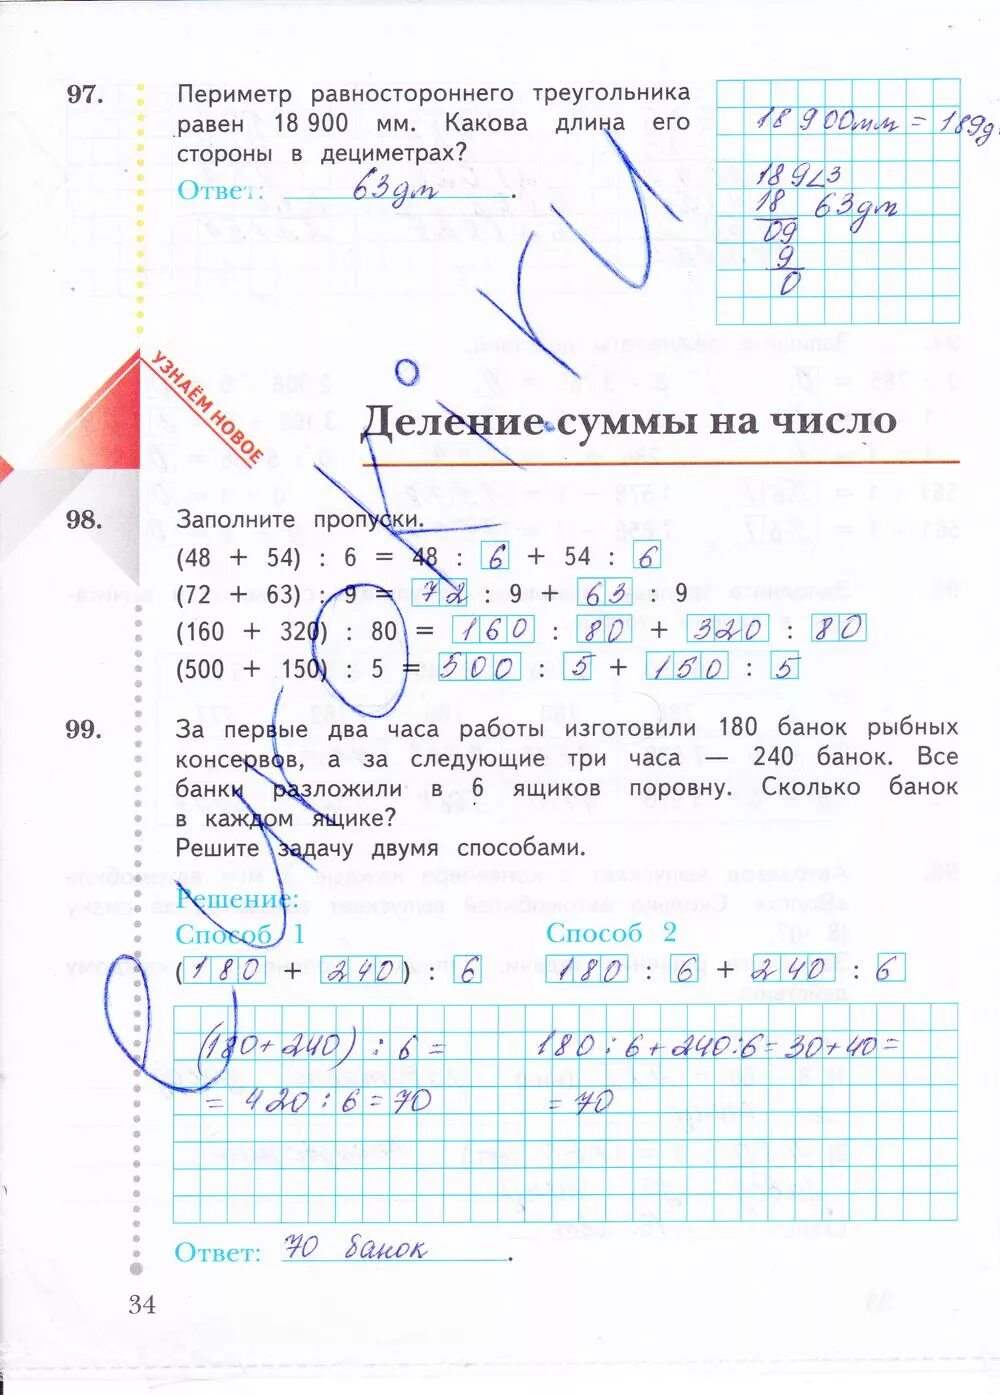 97.
Периметр равностороннего треугольника
равен 18 900 мм. Какова длина его
стороны в дециметрах?
Ответ: 63дм.
18 900мм = 189д
189∠3
18 63дм
09
9
0
УЗНАЁМ НОВОЕ
Деление суммы на число
98.
Заполните пропуски.
(48 + 54) : 6 = 48 : 6 + 54 : 6
(72 + 63) : 9 = 72 : 9 + 63 : 9
(160 + 320) : 80 = 160 : 80 + 320 : 80
(500 + 150) : 5 = 500 : 5 + 150 : 5
99.
За первые два часа работы изготовили 180 банок рыбных
консервов, а за следующие три часа — 240 банок. Все
банки разложили в 6 ящиков поровну. Сколько банок
в каждом ящике?
Решите задачу двумя способами.
Решение:
Способ 1
(180 + 240) : 6
(180+240) : 6 =
= 420 : 6 = 70
Способ 2
180 : 6 + 240 : 6
180 : 6 + 240:6 = 30+40 =
= 70
Ответ: 70 банок.
34